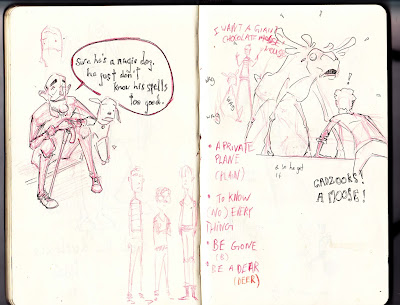 Sure he's a magic dog,
he just don't
know his spells
too good.
I WANT A GIANT
CHOCOLATE
WAG
WAG
• A PRIVATE
PLANE
(PLAIN)
• TO KNOW
NO) EVERY
THING
• BE GONE
(B)
• BE A DEAR
(DEER)
he got
it
GADZOOKS!
A MOOSE!